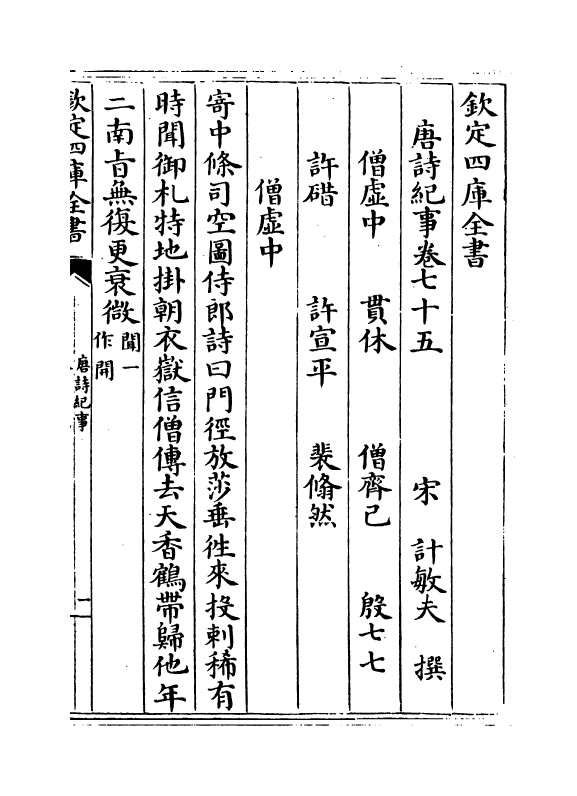 欽定四庫全書
唐詩紀事卷七十五
宋 計敏夫 撰
僧虛中 貫休 僧齊己 殷七七
許碏 許宣平 裴翛然
僧虛中
寄中條司空圖侍郎詩曰門徑放莎垂徃來投刺稀有
時聞御札特地掛朝衣嶽信僧傳去天香鶴帶歸他年
二南㫖無復更衰微聞一作開
欽定四庫全書
唐詩紀事
一